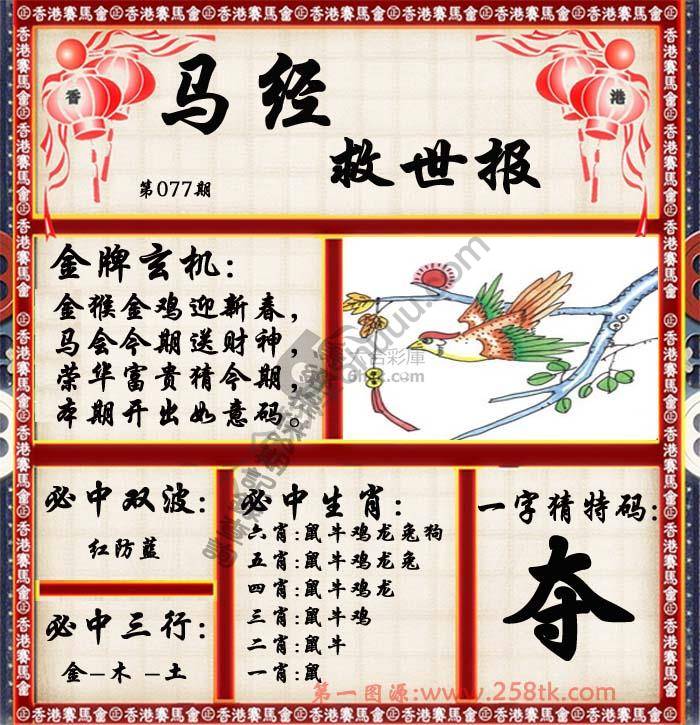 香 港
马经
救世报
第077期
金牌玄机:
金猴金鸡迎新春，
马会今期送财神，
荣华富贵猜今期，
本期开出如意码。
六合彩庫
必中双波:
红防蓝
必中三行:
金-木-土
必中生肖:
六肖:鼠牛鸡龙兔狗
五肖:鼠牛鸡龙兔
四肖:鼠牛鸡龙
三肖:鼠牛鸡
二肖:鼠牛
一肖:鼠
一字猜特码:
夺
第一图源:www.258tk.com
香港賽馬會